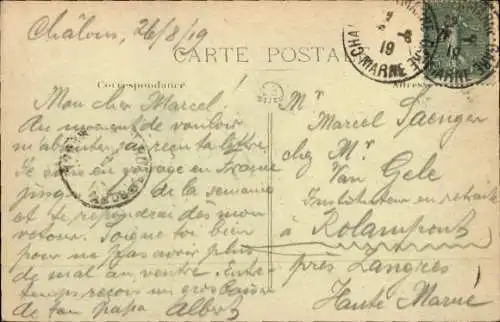 Châlons, 26/8/19
CARTE POSTALE
Correspondance
Mon cher Marcel,
Au moment de vouloir
m'absenter, je reçu ta lettre
Je suis en voyage en
jusqu' de la semaine
et te répondrai dès mon
retour. Soigne toi bien
pour ne pas avoir plus
de mal au ventre. Entre-
temps reçois un gros baiser
de ton papa Albert
Mr
Marcel Saenger
chez Mr
Van Gele
Instituteur en retraite
à Rolampont
près Langres
Haute Marne
MARNE
19
MARNE
19